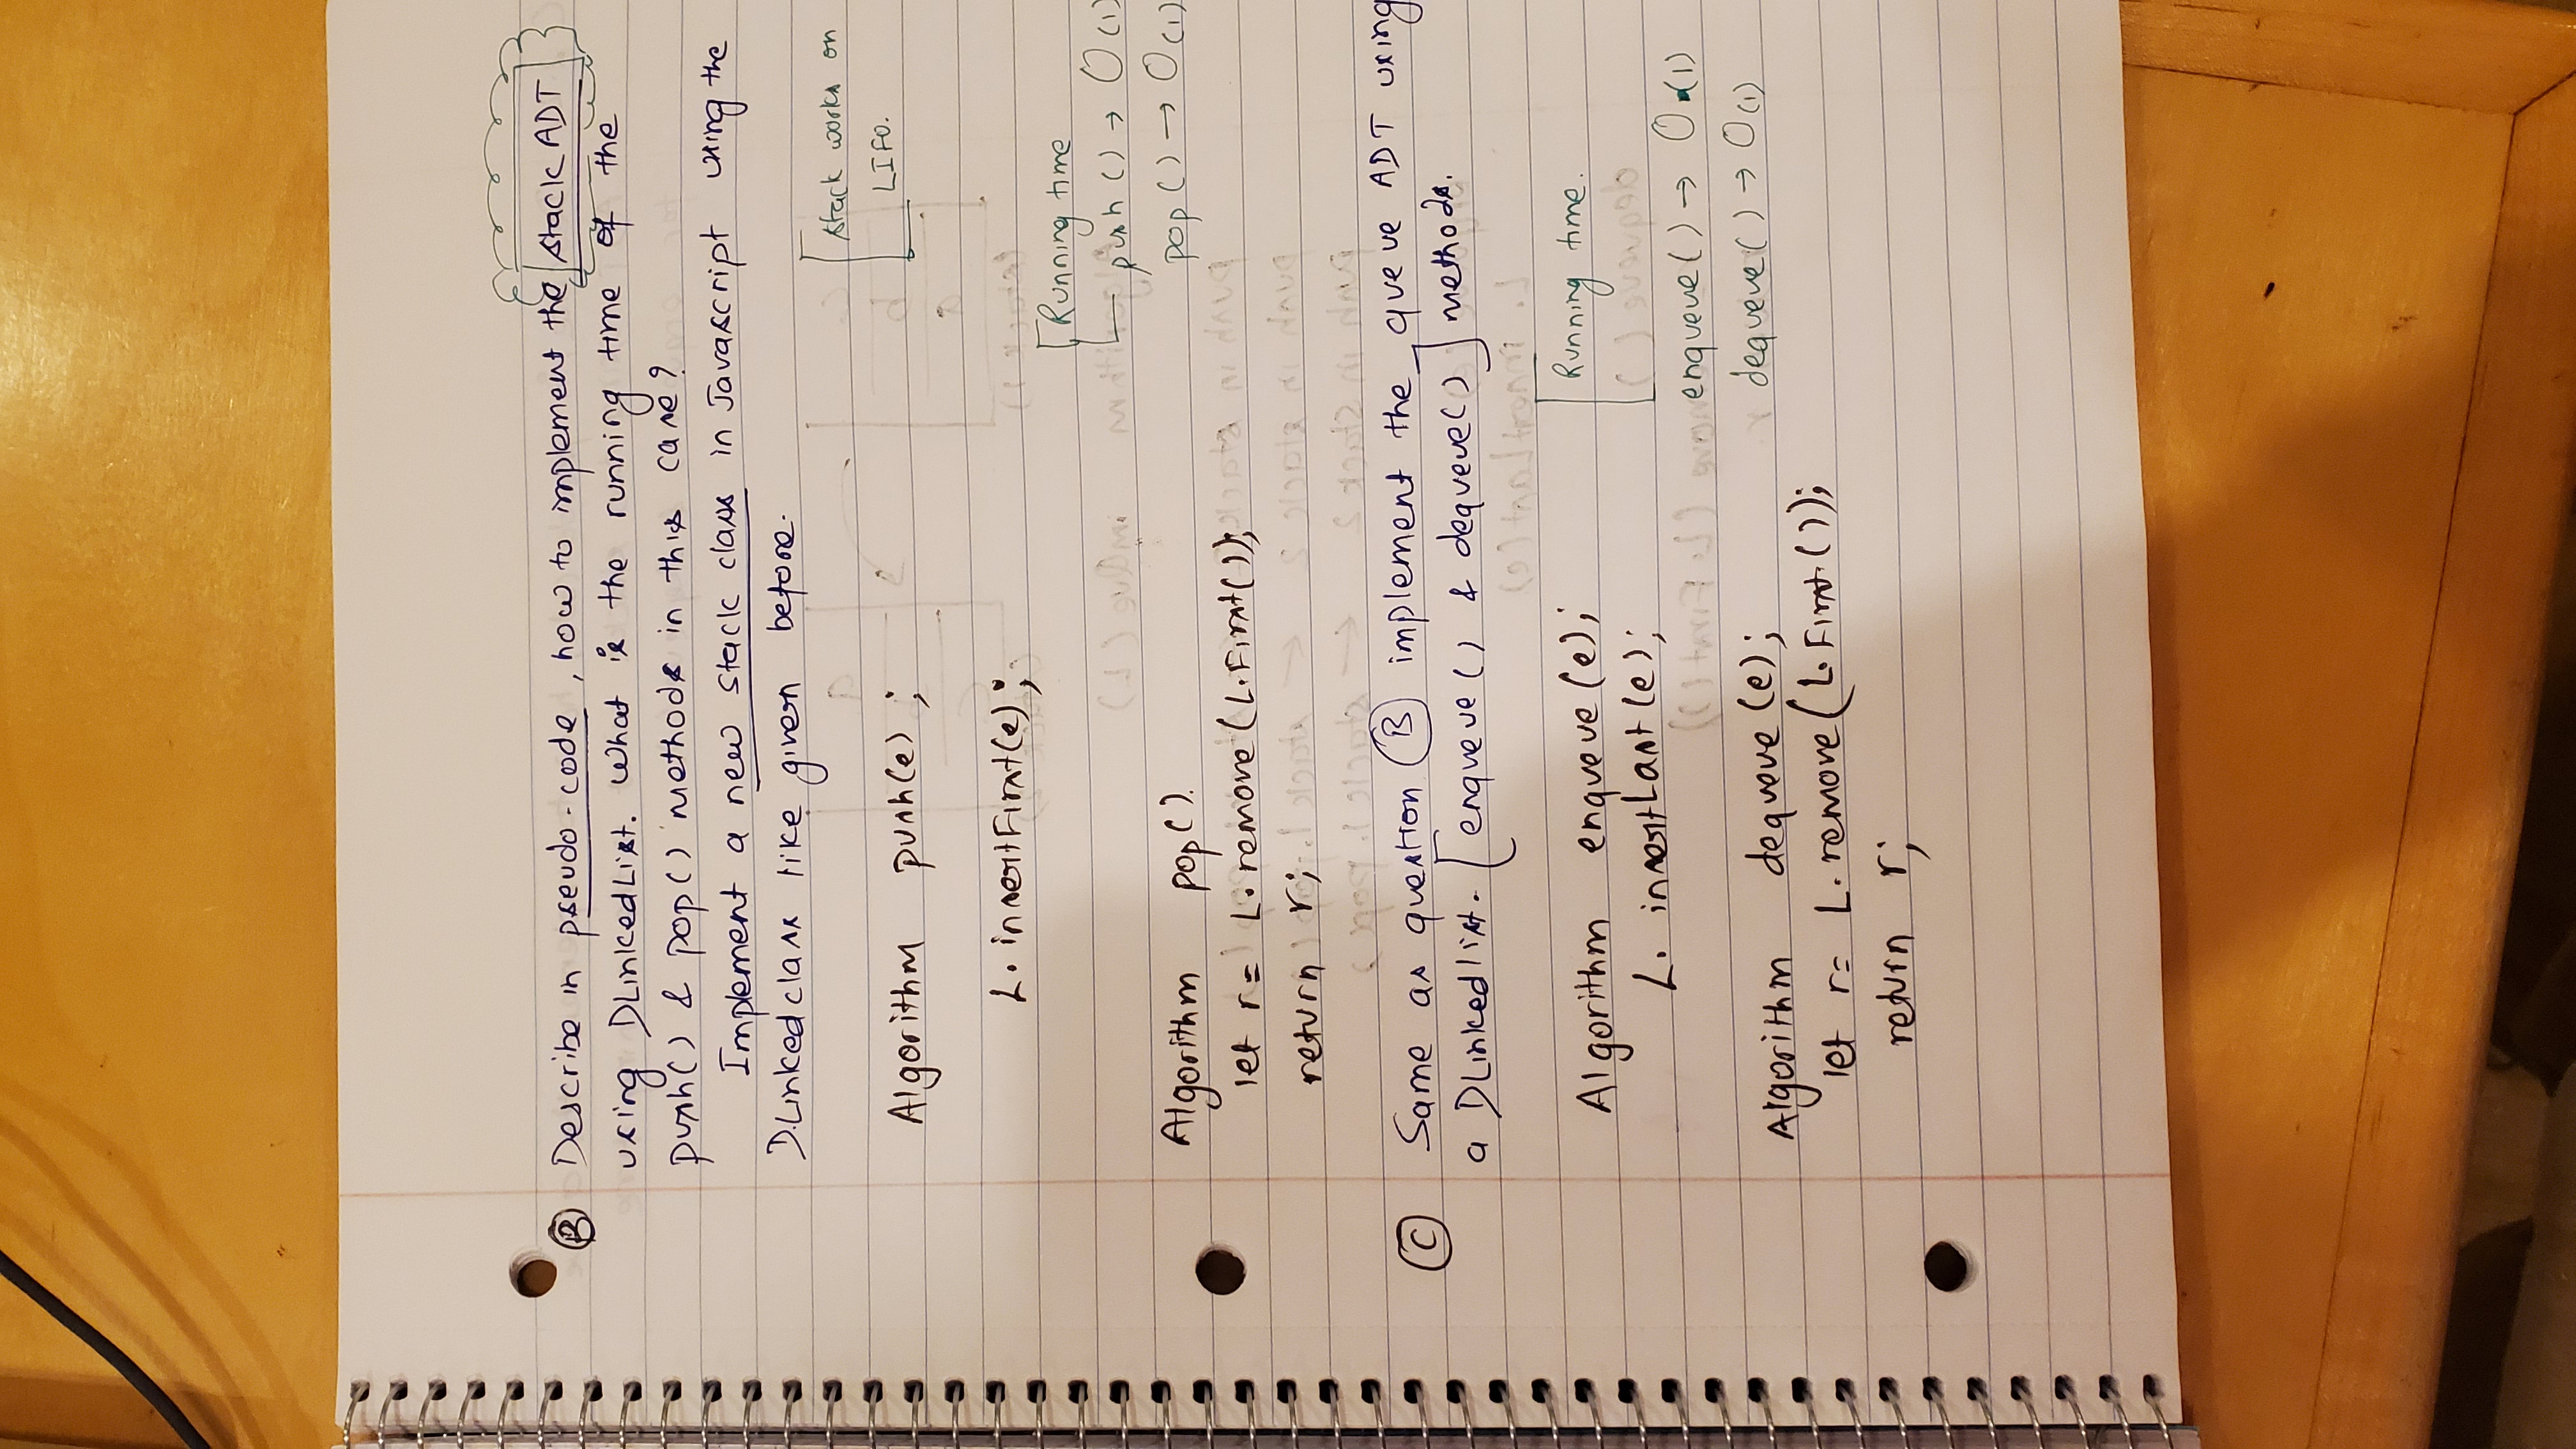 B Describe in pseudo-code, how to implement the stack ADT
using DLinkedList. What is the running time of the
push() & pop() methods in this case?
Implement a new stack class in Javascript using the
D.Linkedclass like given before.
Stack works on
LIFO.
Algorithm push(e);
L.insertFirst(e);
Running time
push() → O(1)
pop() → O(1)
Algorithm pop().
let r= L.remove(L.First());
return r;
C Same as question B implement the queue ADT using
a DLinkedlist. [enqueue() & dequeue()] methods.
Algorithm enqueue(e);
L. insertLast(e);
Running time.
enqueue() → O(1)
dequeue() → O(1)
Algorithm dequeue(e);
let r= L.remove(L.First.());
return r;